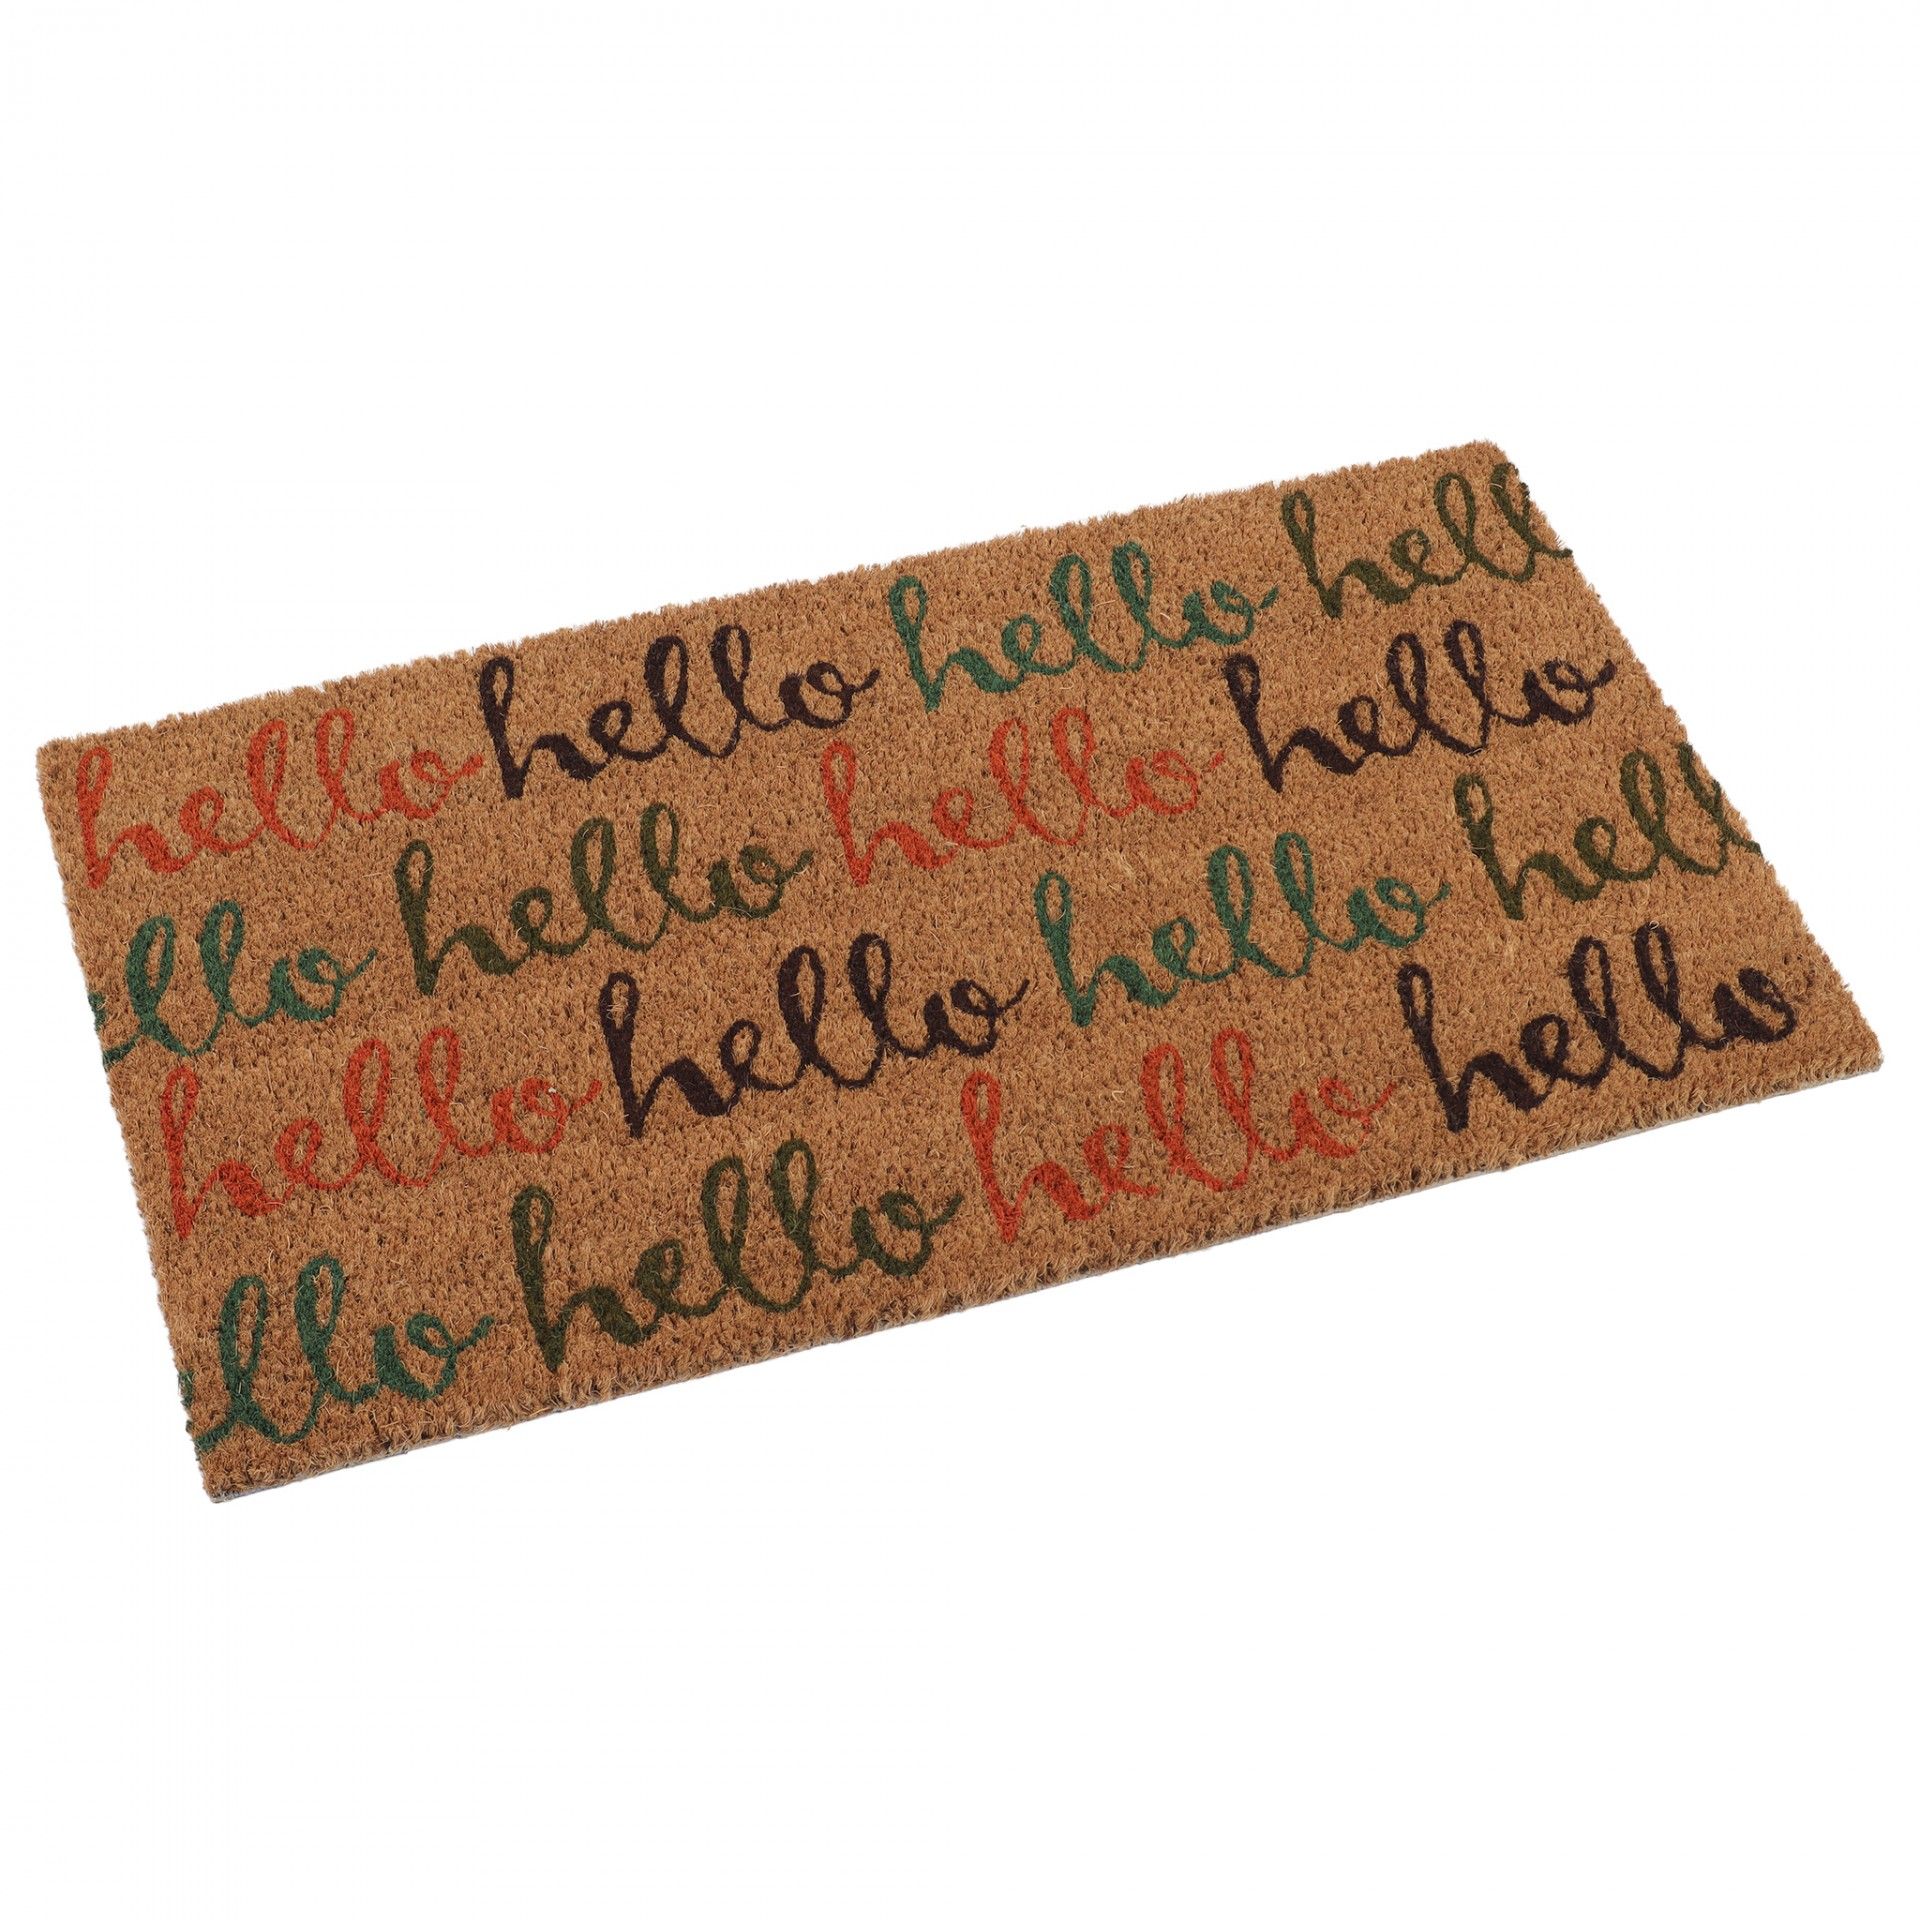 hello hello hello hell
llo hello hello hello
hello hello hello hell
llo hello hello hello